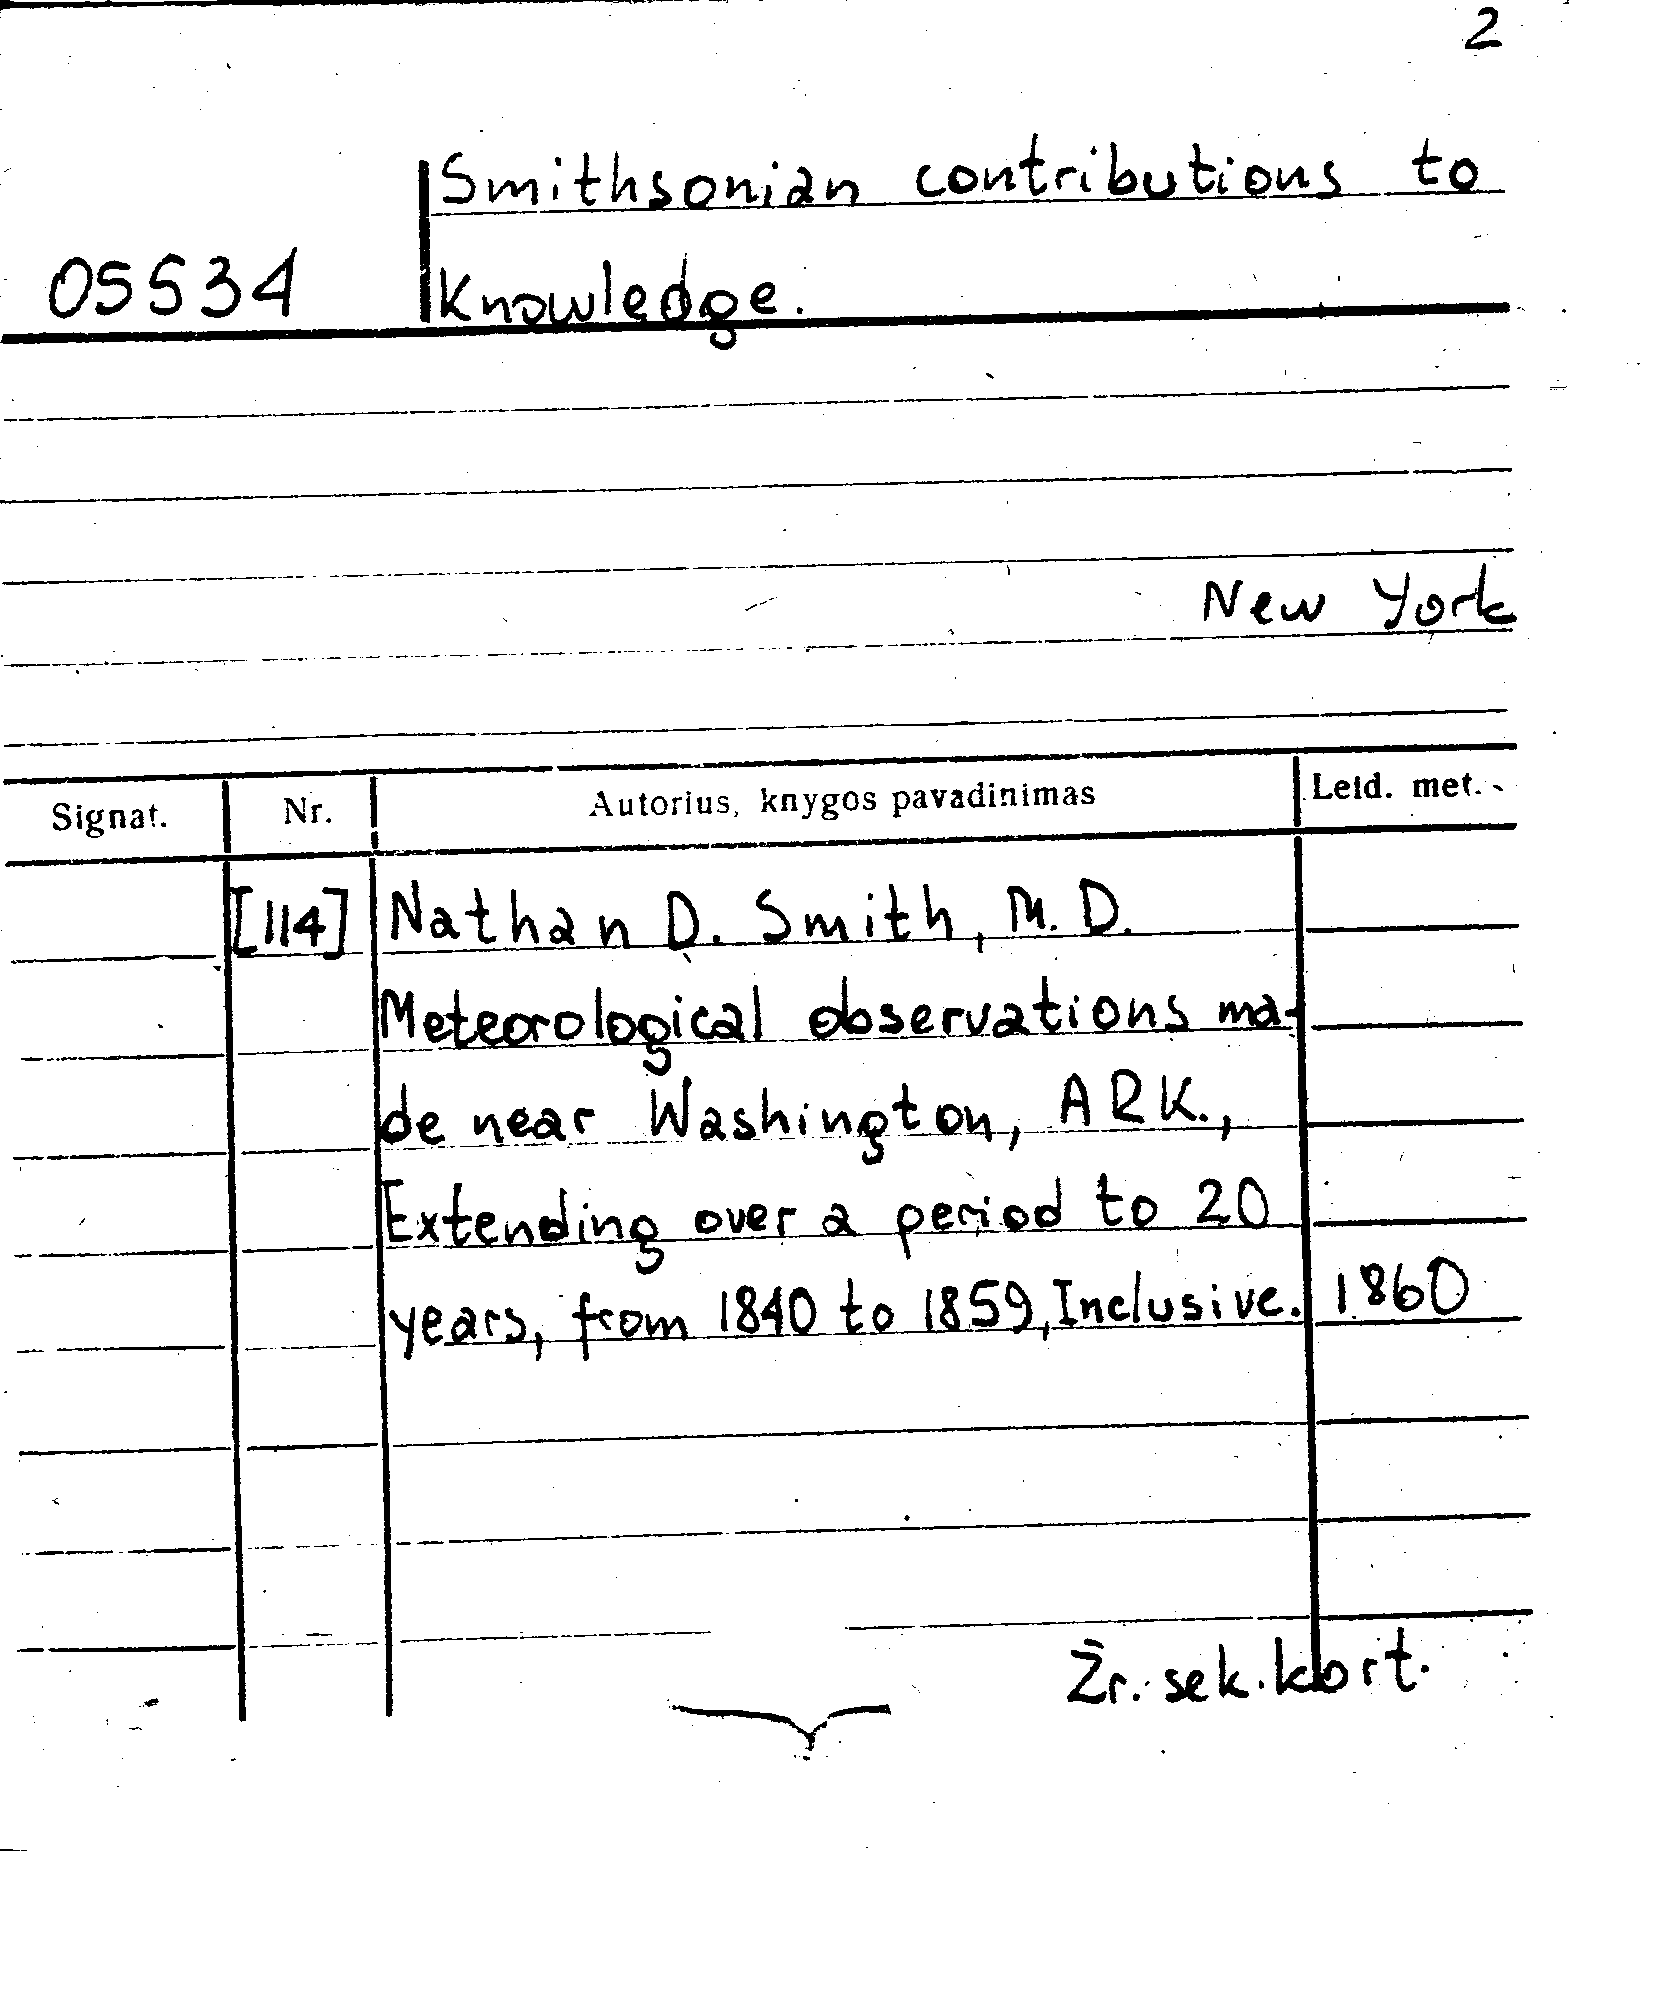 2
Smithsonian contributions to
05534 Knowledge.
New York
Signat. Nr. Autorius, knygos pavadinimas Leid. met.
[114] Nathan D. Smith, M. D.
Meteorological observations ma-
de near Washington, ARK.,
Extending over a period to 20
years, from 1840 to 1859, Inclusive. 1860
Žr. sek. kort.